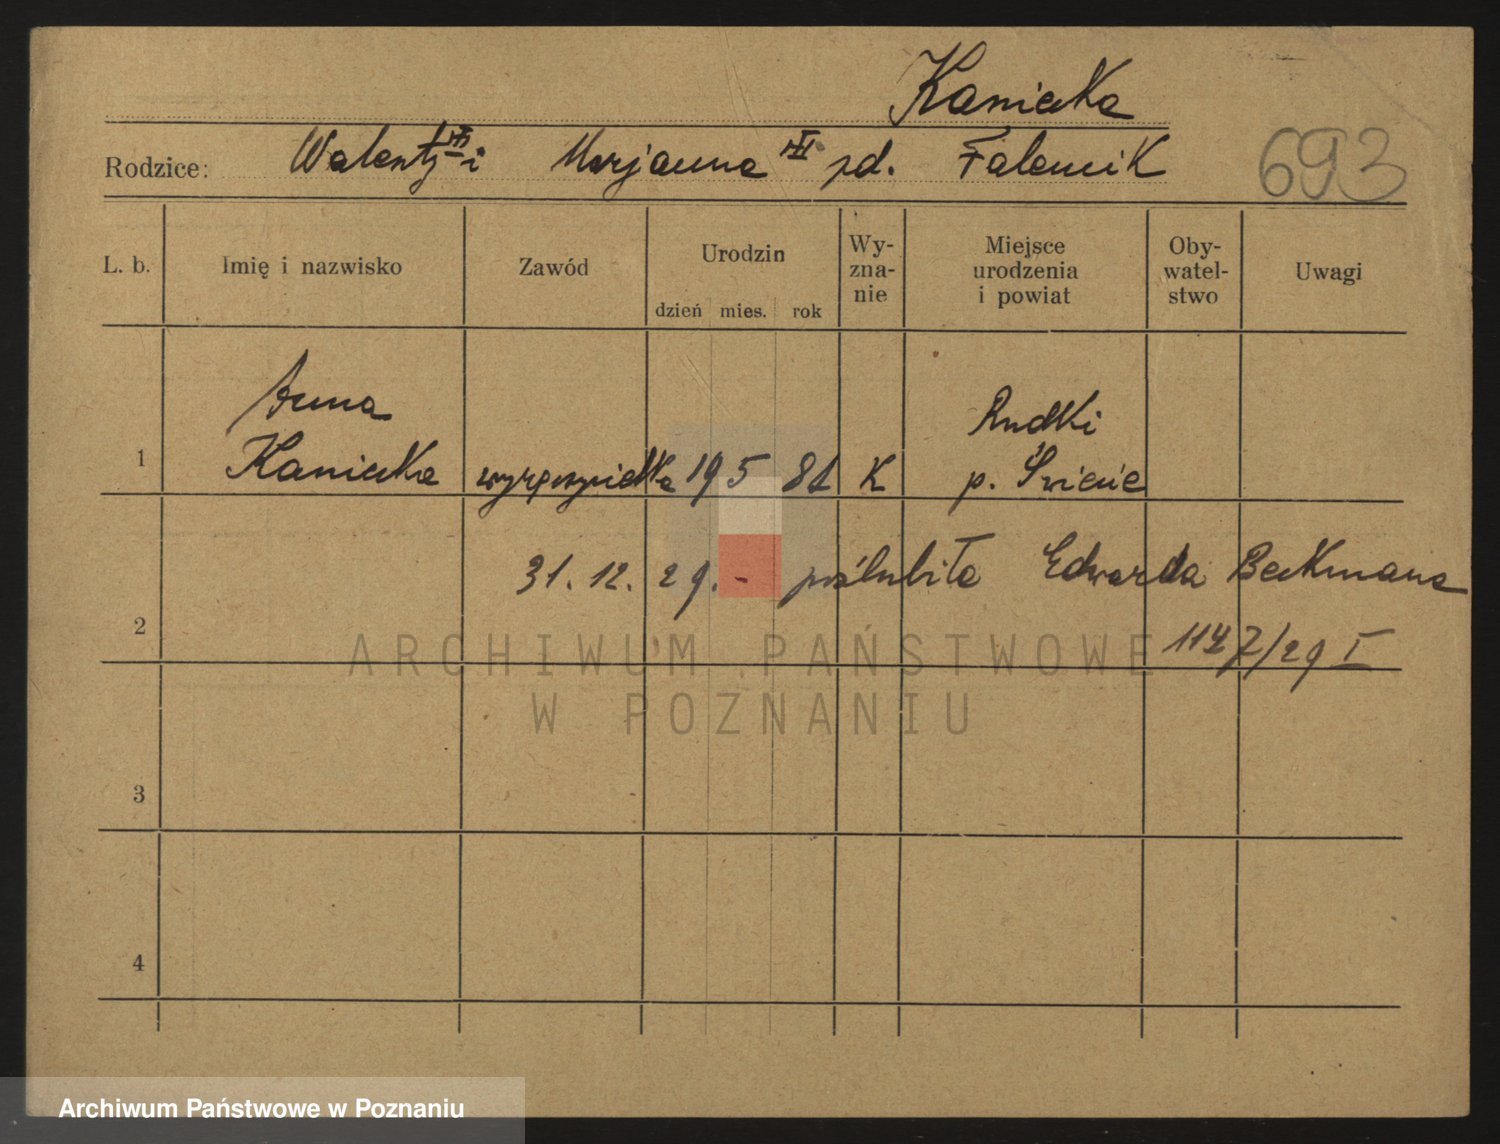 Kaniecka
Rodzice: Walenty i Marjanna pd. Falencik
693
L. b. Imię i nazwisko Zawód Urodzin dzień mies. rok Wy-zna-nie Miejsce urodzenia i powiat Oby-watel-stwo Uwagi
Anna Rudki
1 Kaniecka 19 5 81 K p. Świecie
31. 12. 29. - poślubiła Edwarda Beckmana
2 1147/29 I
ARCHIWUM PAŃSTWOWE
W POZNANIU
3
4
Archiwum Państwowe w Poznaniu